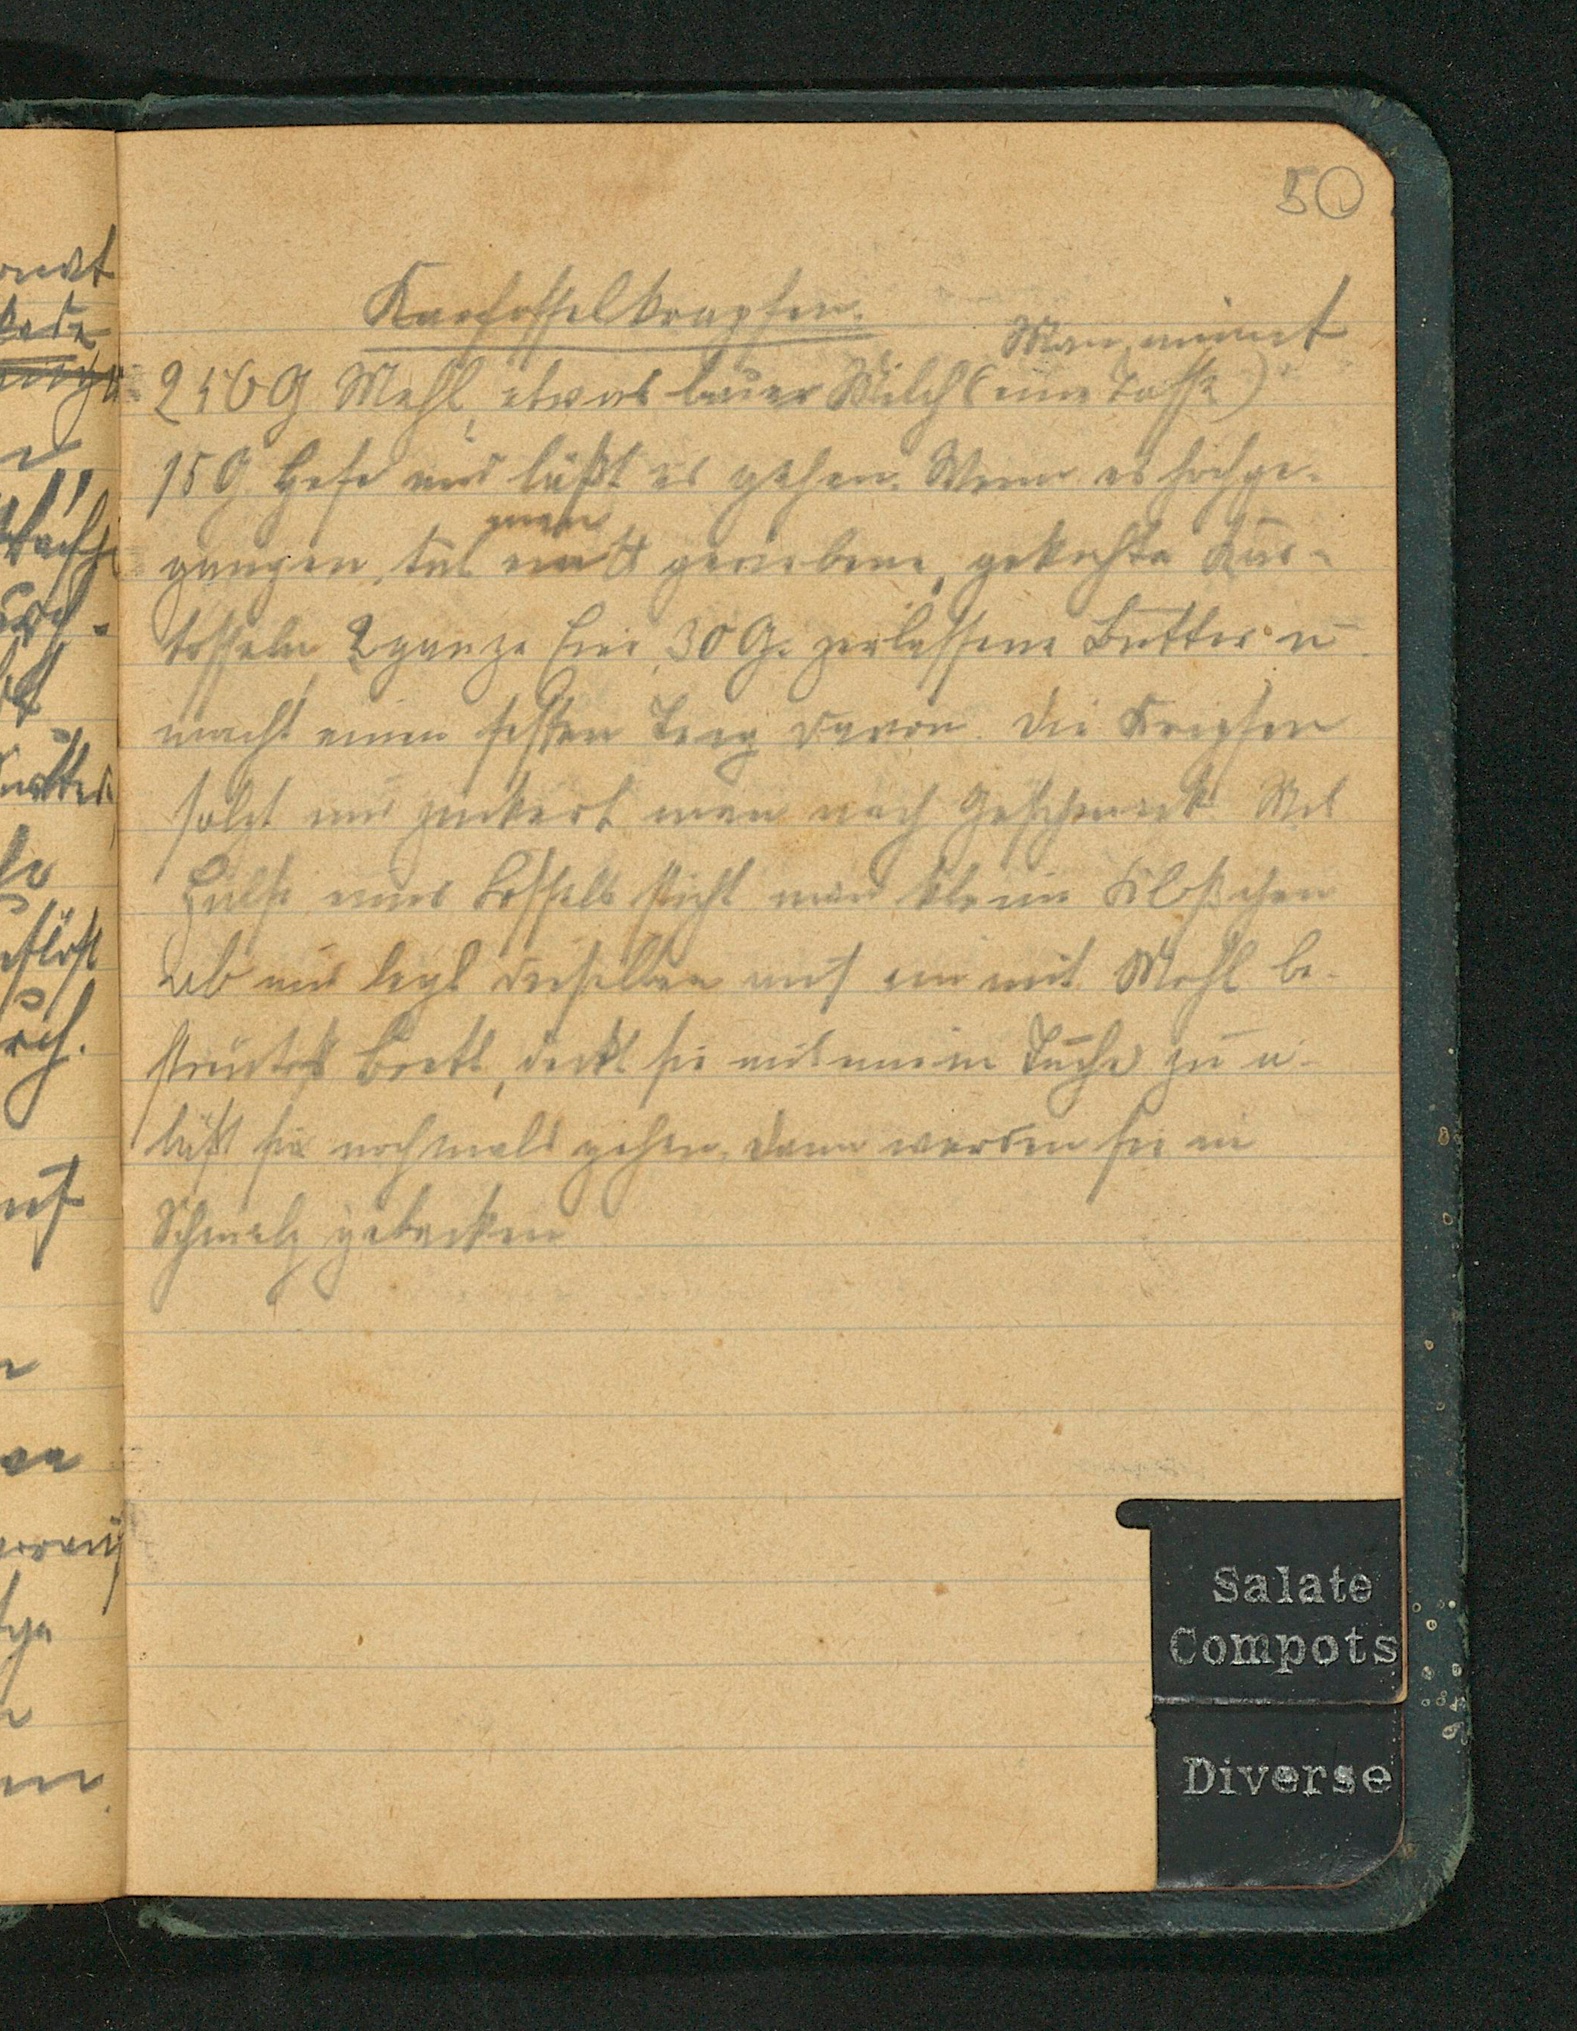 50
Kartoffelkrapfen.
Man nimmt
250 G Mehl, etwas lauer Milch (eine Tasse)
15 G. Hefe und läßt es gehen. Wenn es hochge-
gangen, tut man geriebene, gekochte Kar-
toffeln, 2 ganze Eier, 30 G. zerlassene Butter u.
macht einen festen Teig davon. Die Krapfen
salzt und zuckert man nach Geschmack. Mit
Hülfe eines Löffels sticht man kleine Klößchen
ab und legt dieselben auf ein mit Mehl be-
streutes Brett, deckt sie mit einem Tuche zu u.
läßt sie nochmals gehen, dann werden sie in
Schmalz gebacken
Salate
Compots
Diverse